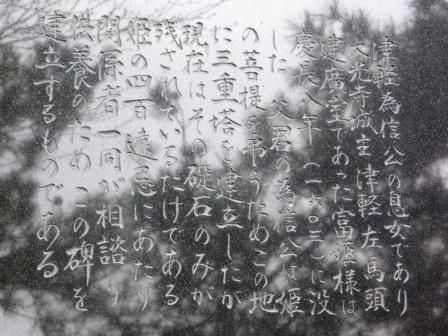 津軽為信公の息女であり
大光寺城主津軽左馬頭
建廣室であった富姫様は
慶長八年（一六〇三）に没
した 父君の為信公は姫
の菩提を弔うためこの地
に三重塔を建立したが
現在はその礎石のみが
残されているだけである
姫の四百遠忌にあたり
関係者一同が相談り
供養のためこの碑を
建立するものである